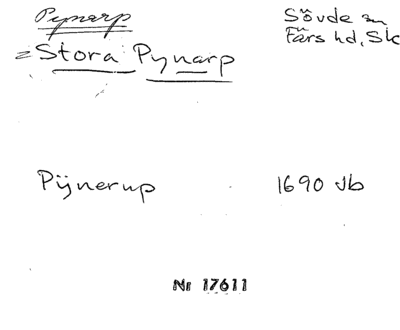 Pynarp
Sövde sn
Färs hd, Sk
= Stora Pynarp
Pijnerup
1690 Jb
Nr 17611